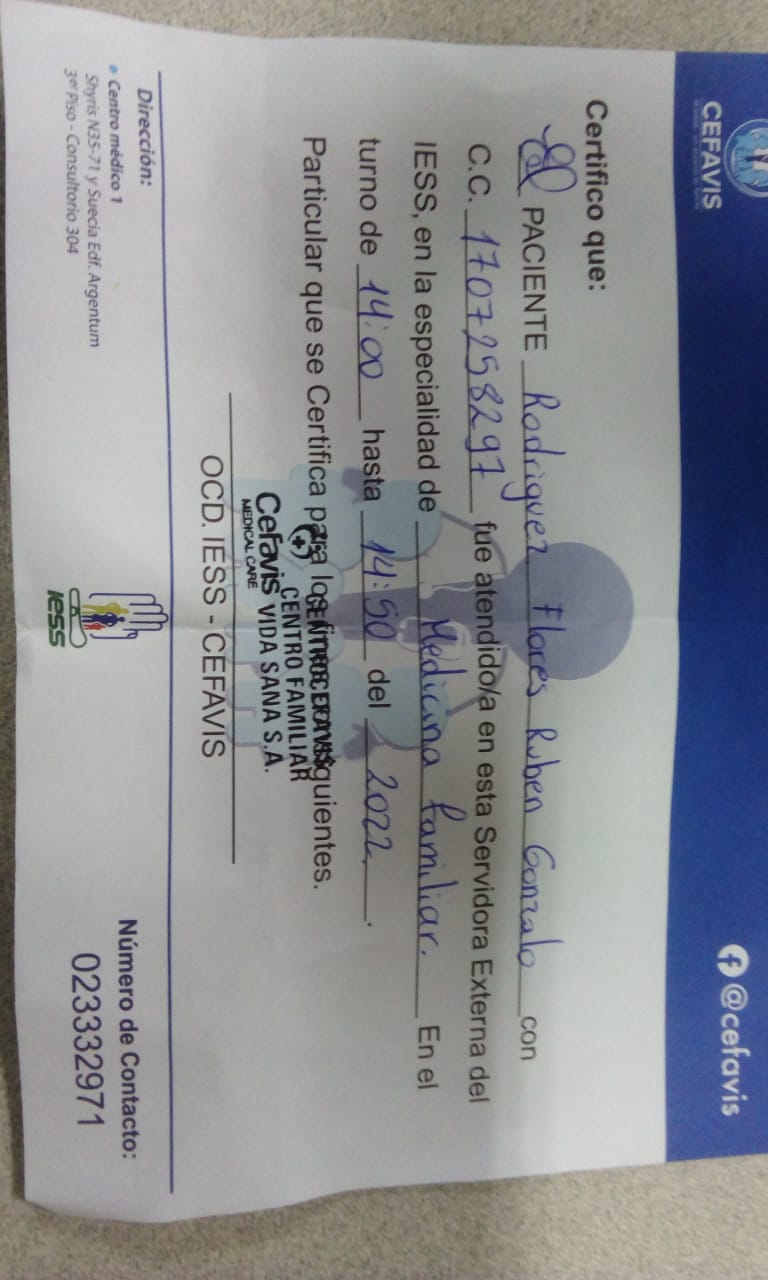 CEFAVIS
@cefavis
Certifico que:
El PACIENTE Rodriguez Flores Ruben Gonzalo con
C.C. 1707258297 fue atendido/a en esta Servidora Externa del
IESS, en la especialidad de Medicina familiar. En el
turno de 14:00 hasta 14:50 del 2022.
Particular que se Certifica para los fines siguientes.
CENTRO FAMILIAR
Cefavis VIDA SANA S.A.
MEDICAL CARE
OCD. IESS - CEFAVIS
Dirección:
• Centro médico 1
Shyris N35-71 y Suecia Edf. Argentum
3er Piso - Consultorio 304
iess
Número de Contacto:
023332971